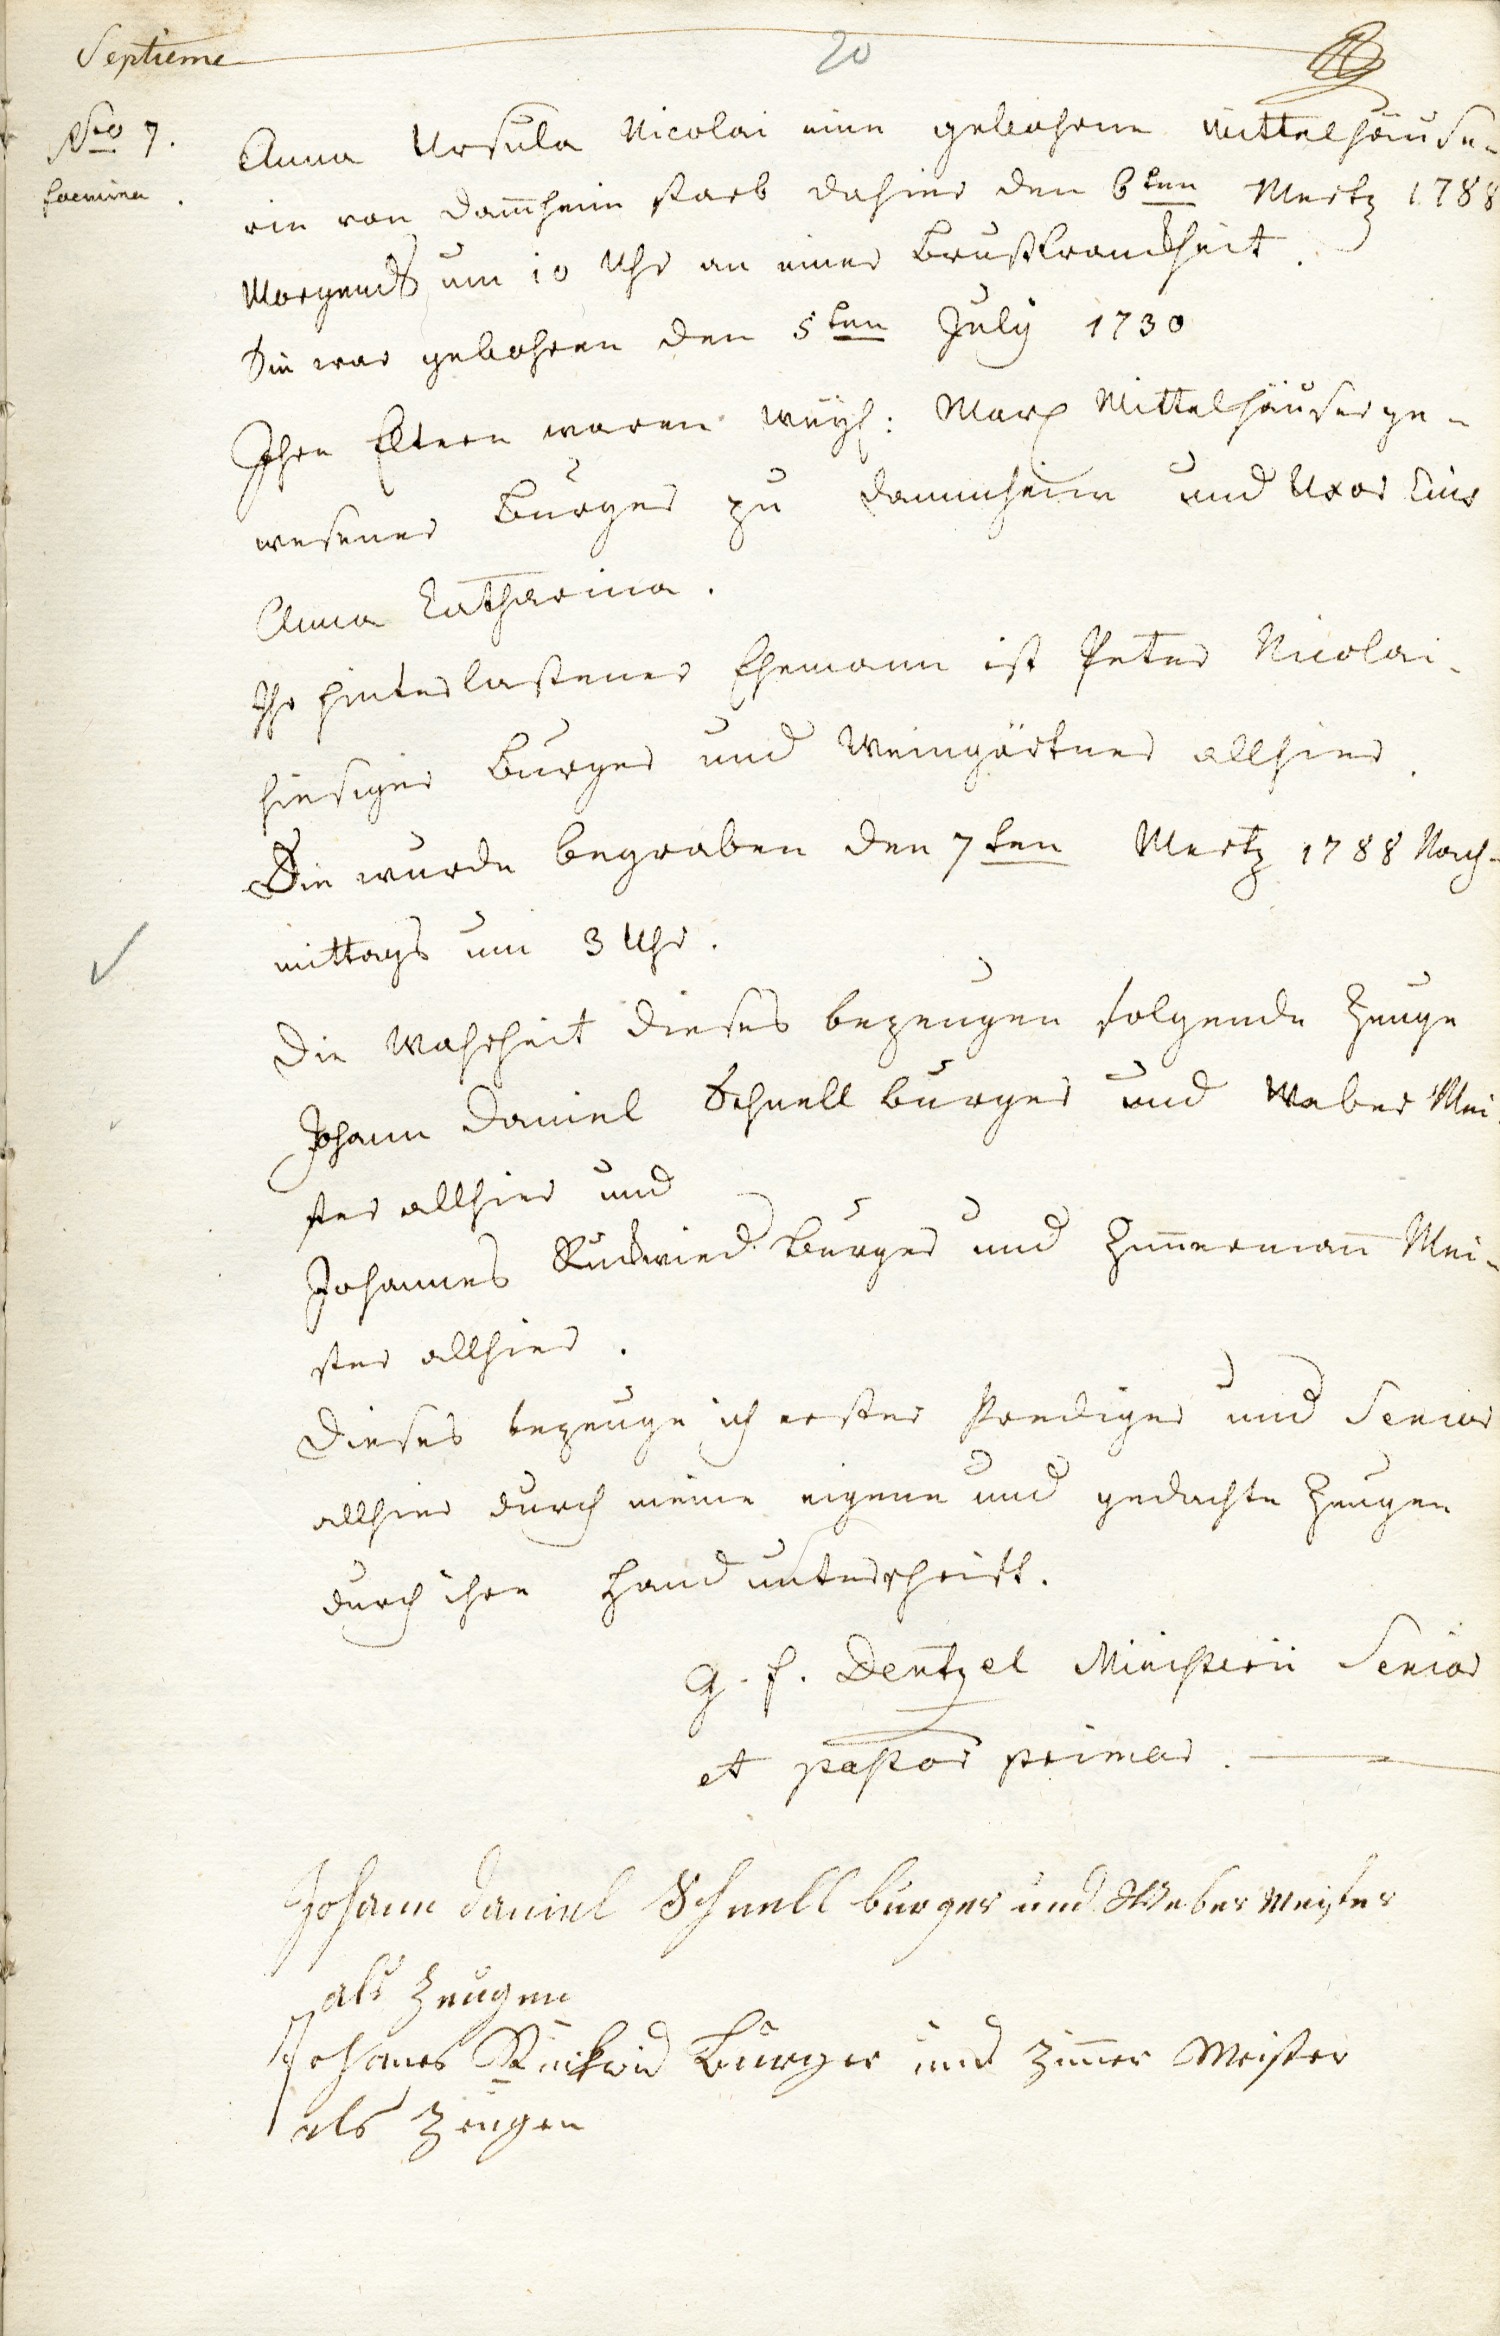 Septieme
20
Nro 7.
foemina.
Anna Ursula Nicolai eine gebohrne Mittelhäuse-
rin von Dam̅heim starb dahier den 6ten Mertz 1788
Morgends um 10 Uhr an einer Brustkranckheit.
Sie war gebohren den 5ten July 1730
Ihre Eltern waren weyl: Marx Mittelhäuser ge-
wesener Burger zu Dammheim und Uxor Eius
Anna Catharina.
Ihr hinterlassener Ehemann ist Peter Nicolai-
hiesiger Burger und Weingärtner allhier.
Sie wurde begraben den 7ten Mertz 1788 Nach-
mittags um 3 Uhr.
Die Wahrheit dieses bezeugen folgende Zeuge
Johann Daniel Schnell burger und Weber Mei-
ster allhier und
Johannes Ruckwied Burger und Zim̅erman̅ Mei-
ster allhier.
Dieses bezeuge ich erster Prediger und Senior
allhier durch meine eigene und gedachte Zeugen
durch ihre Handunterschrift.
G. F. Dentzel Ministerii Senior
et pastor primar.
Johann Daniel Schnell burger und Weber Meister
als Zeugen
Johanes Ruckwid Burger und Zim̅er Meister
als Zeugen